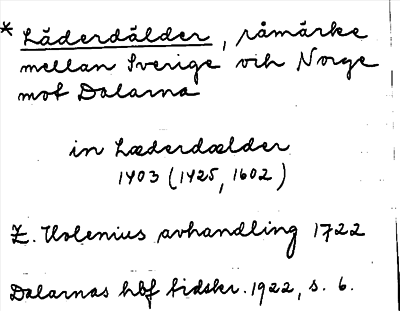 * Läderdälder, råmärke
mellan Sverige och Norge
mot Dalarna
in Læderdælder
1403 (1425, 1602)
E. Holenius avhandling 1722
Dalarnas hbf tidskr. 1922, s. 6.